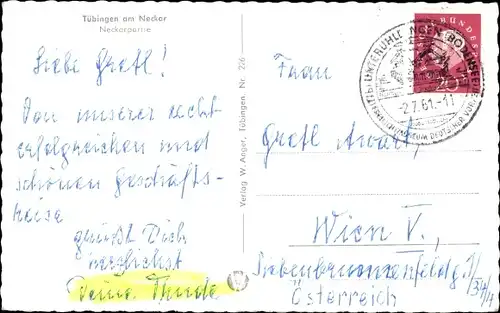 Tübingen am Neckar
Neckarpartie
Liebe Gretl!
Von unserer recht
erfolgreichen und
schönen Geschäfts-
reise
grüßt Dich
herzlichst
Deine
Verlag W. Anger, Tübingen, Nr. 226
UNTERUHLDINGEN (BODENSEE)
-2.7.61.-11
DEUTSCHER
BUNDES
20
Frau
Gretl
Wien V.,
Siebenbrunnenfeldg. 1/
Österreich